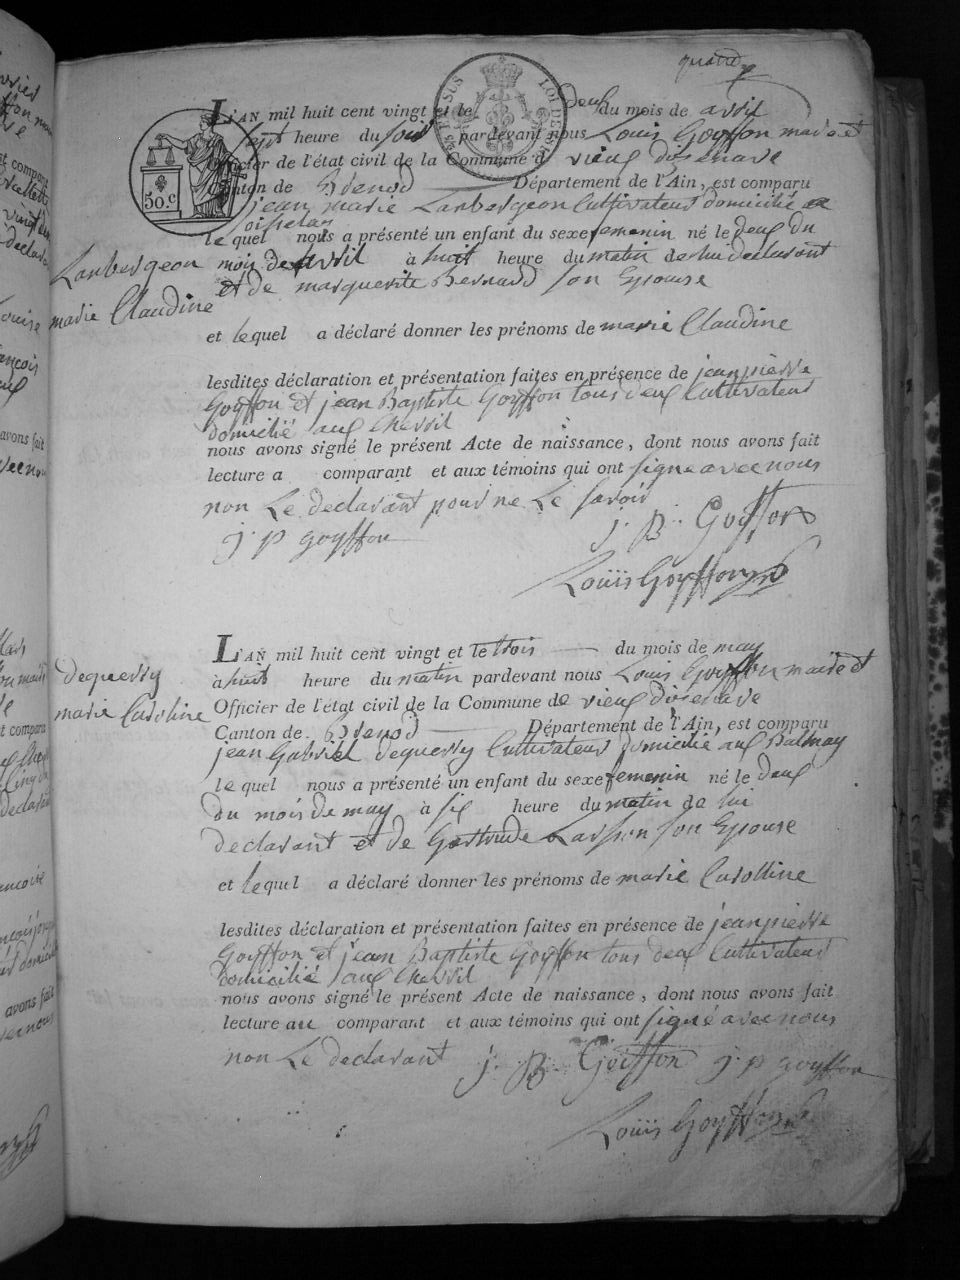 quatre
L'AN mil huit cent vingt et le deux du mois de avril
sept heure du soir pardevant nous Louis Goyffon maire et
Officier de l'état civil de la Commune de vieux disenave
Canton de Brenod Département de l'Ain, est comparu
jean marie Lanbergeon Cultivateur domicilié
le quel nous a présenté un enfant du sexe femenin né le deux du
Lanbergeon mois de avril à huit heure du matin de lui declarant
et de marguerite Bernard son Epouse
marie Claudine
et lequel a déclaré donner les prénoms de marie Claudine
lesdites déclaration et présentation faites en présence de jean pierre
Goyffon et jean Baptiste Goyffon tous deux Cultivateur
domicilié aux Chevril
nous avons signé le présent Acte de naissance, dont nous avons fait
lecture a comparant et aux témoins qui ont signé avec nous
non Le declarant pour ne Le savoir
j. B. Goyffon
j. p goyffon
Louïs Goyffon
L'AN mil huit cent vingt et le trois du mois de may
dequerry
à huit heure du matin pardevant nous Louis Goyffon maire et
marie Caroline
Officier de l'état civil de la Commune de vieux disenave
Canton de Brenod Département de l'Ain, est comparu
jean Gabriel dequerry Cultivateur domicilié aux Balmay
le quel nous a présenté un enfant du sexe femenin né le deux
du mois de may à six heure du matin de lui
declarant et de Gertrude son Epouse
et lequel a déclaré donner les prénoms de marie Carolline
lesdites déclaration et présentation faites en présence de jean pierre
Goyffon et jean Baptiste Goyffon tous deux Cultivateur
domicilié aux Chevril
nous avons signé le présent Acte de naissance, dont nous avons fait
lecture au comparant et aux témoins qui ont signé avec nous
non Le declarant j. B. Goiffon j. p goyffon
Louïs Goyffon
50.c